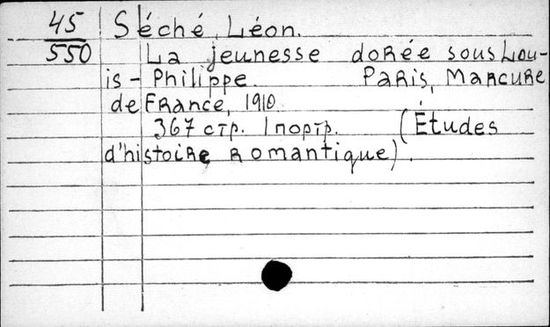 45 Séché, Léon.
550 La jeunesse dorée sous Lou-
is-Philippe. Paris, Marcure
de France, 1910.
367 стр. 1 портр. (Études
d'histoire romantique).